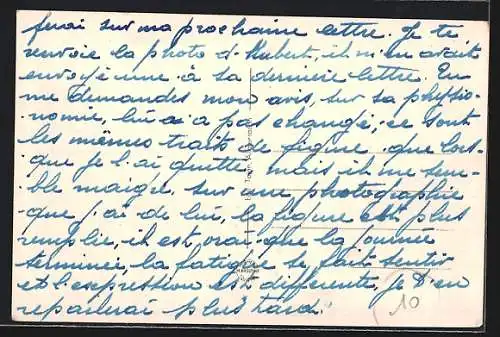 ferai sur ma prochaine lettre. Je te
renvoie la photo d'Hubert, il m'en avait
envoyé une à sa dernière lettre. Tu
me demandes mon avis, sur sa physio-
nomie, lui a pas changé, ce sont
les mêmes traits de figure que lors-
que je l'ai quitté mais, il me sem-
ble maigre. sur une photographie
que j'ai de lui, la figure est plus
remplie, il est, vrai que la journée
terminée, la fatigue se fait sentir
et l'expression est différente. Je t'en
reparlerai plus tard.
10